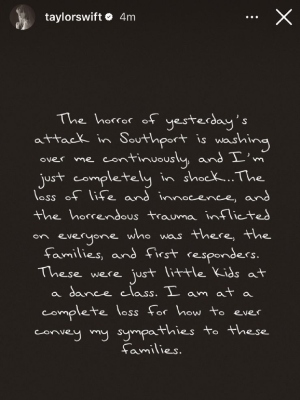 taylorswift 4m
The horror of yesterday's
attack in Southport is washing
over me continuously, and I'm
just completely in shock...The
loss of life and innocence, and
the horrendous trauma inflicted
on everyone who was there, the
families, and first responders.
These were just little kids at
a dance class. I am at a
complete loss for how to ever
convey my sympathies to these
families.